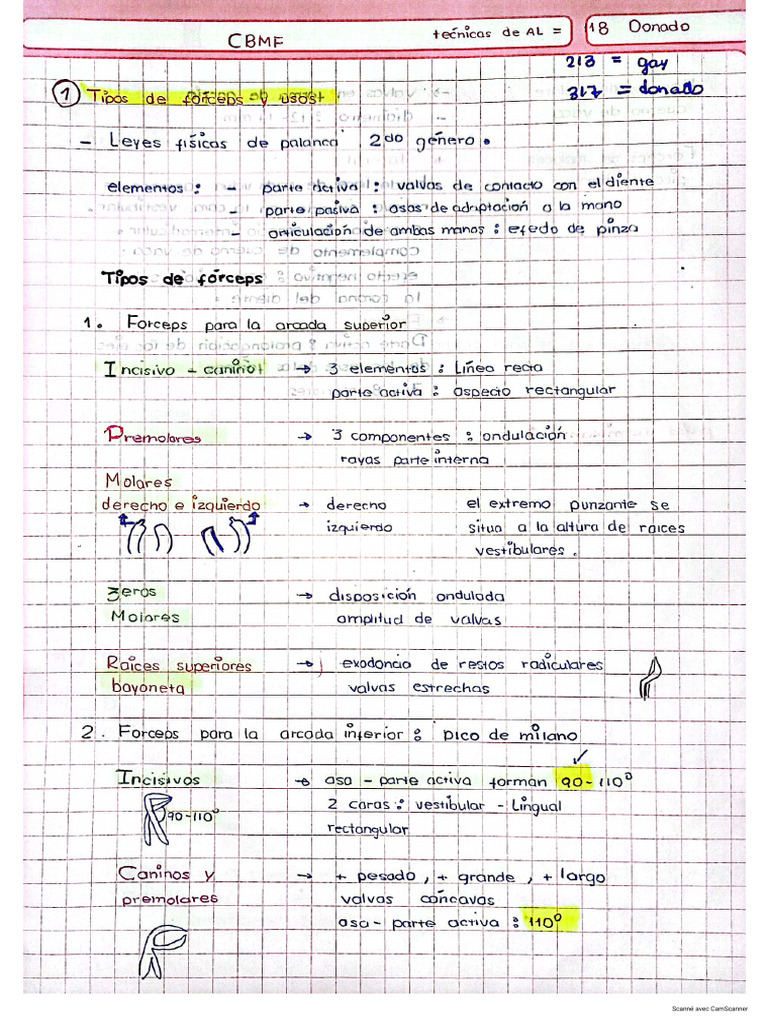 CBMF
tecnicas de AL = 18 Donado
213 = gay
317 = donado
① Tipos de forceps y usos
- Leyes físicas de palanca 2do género.
elementos : - parte activa : valvas de contacto con el diente
- parte pasiva : asas de adaptación a la mano
- articulación de ambas manos : efedo de pinza
Tipos de fórceps
1. Forceps para la arcada superior
Incisivo - canino → 3 elementos : Línea recta
parte activa : aspecto rectangular
Premolares → 3 componentes : ondulación
rayas parte interna
Molares
derecho e izquierdo → derecho el extremo punzante se
izquierdo situa a la altura de raices
vestibulares.
3eros → disposición ondulada
Molares amplitud de valvas
Raices superiores → exodoncia de restos radiculares
bayoneta valvas estrechas
2. Forceps para la arcada inferior : pico de milano
Incisivos → asa - parte activa forman 90-110°
90-110° 2 caras : vestibular - Lingual
rectangular
Caninos y → + pesado, + grande, + largo
premolares valvas cóncavas
asa - parte activa : 110°
Scanné avec CamScanner